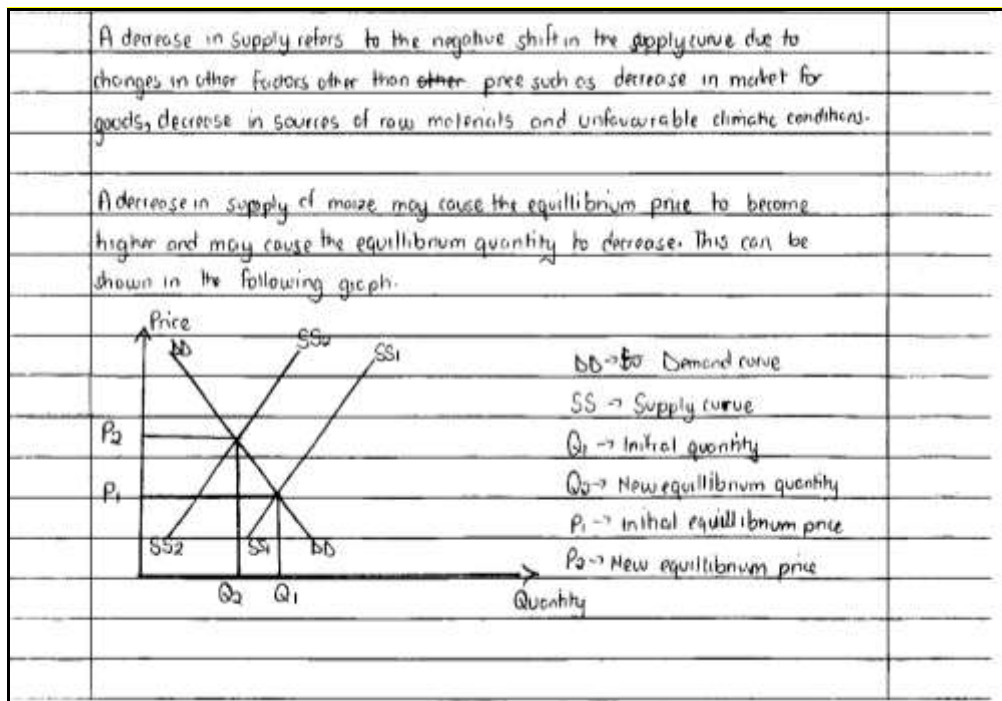 A decrease in supply refers to the negative shift in the supply curve due to
changes in other factors other than other price such as decrease in market for
goods, decrease in sources of raw materials and unfavourable climatic conditions.
A decrease in supply of maize may cause the equillibrium price to become
higher and may cause the equillibrium quantity to decrease. This can be
shown in the following graph.
Price
DD
SS2
SS1
DD → Demand curve
SS → Supply curve
P2
Q1 → Initial quantity
Q2 → New equillibrium quantity
P1
P1 → Initial equillibrium price
SS2
SS1
DD
P2 → New equillibrium price
Q2
Q1
Quantity